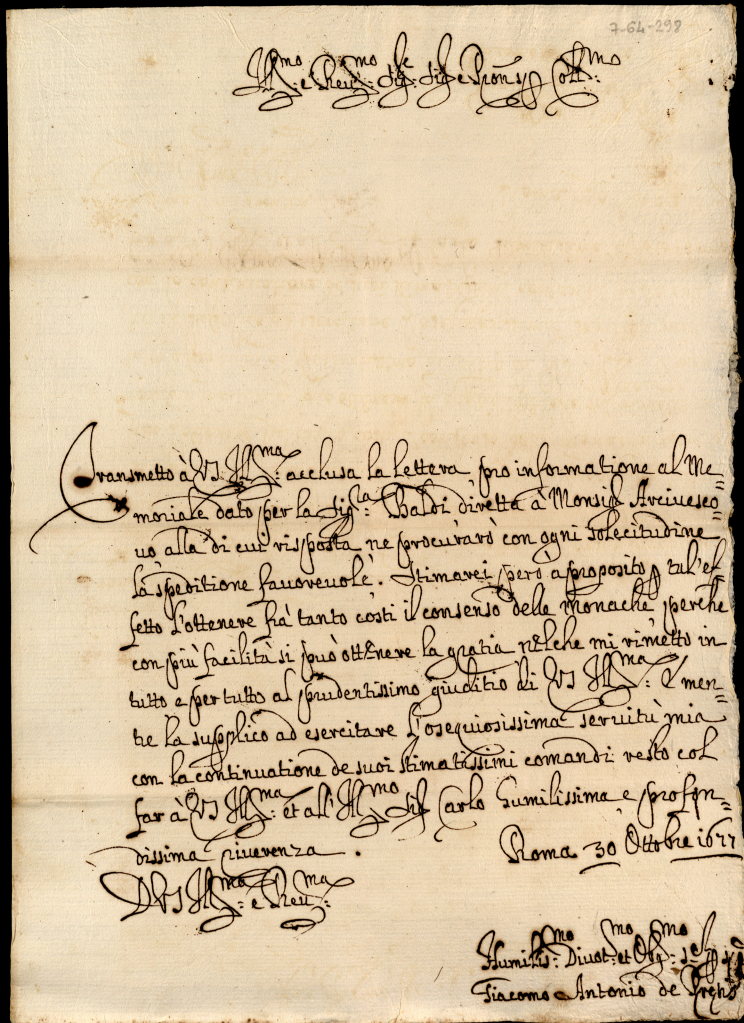 7-64-298
Ill.mo e Reu.mo Sig.re Sig.re e Pron Coll.mo
Transmetto à VS Ill.ma acclusa la lettera pro informatione al Me=
moriale dato per la Sig.ra Baldi diretta à Monsig.r Arciuesco=
uo alla di cui risposta ne procurarò con ogni solecitudine
la speditione fauoreuole. Stimarei però a proposito p tal'ef=
fetto l'ottenere frà tanto costi il consenso delle monache perche
con più facilità si può ottenere la gratia nelche mi rimetto in
tutto e per tutto al prudentissimo giuditio di VS Ill.ma: E men=
tre la supplico ad esercitare l'osequiosissima seruitù mia
con la continuatione de suoi stimatissimi comandi resto col
far à VS Ill.ma: et all'Ill.mo Sig.r Carlo humilissima e profon=
dissima riuerenza.
Roma 30 Ottobre 1677
D VS Ill.ma: e Reu.ma:
Humiliss.mo: Diuot.mo: et Obl.mo:
Giacomo Antonio de